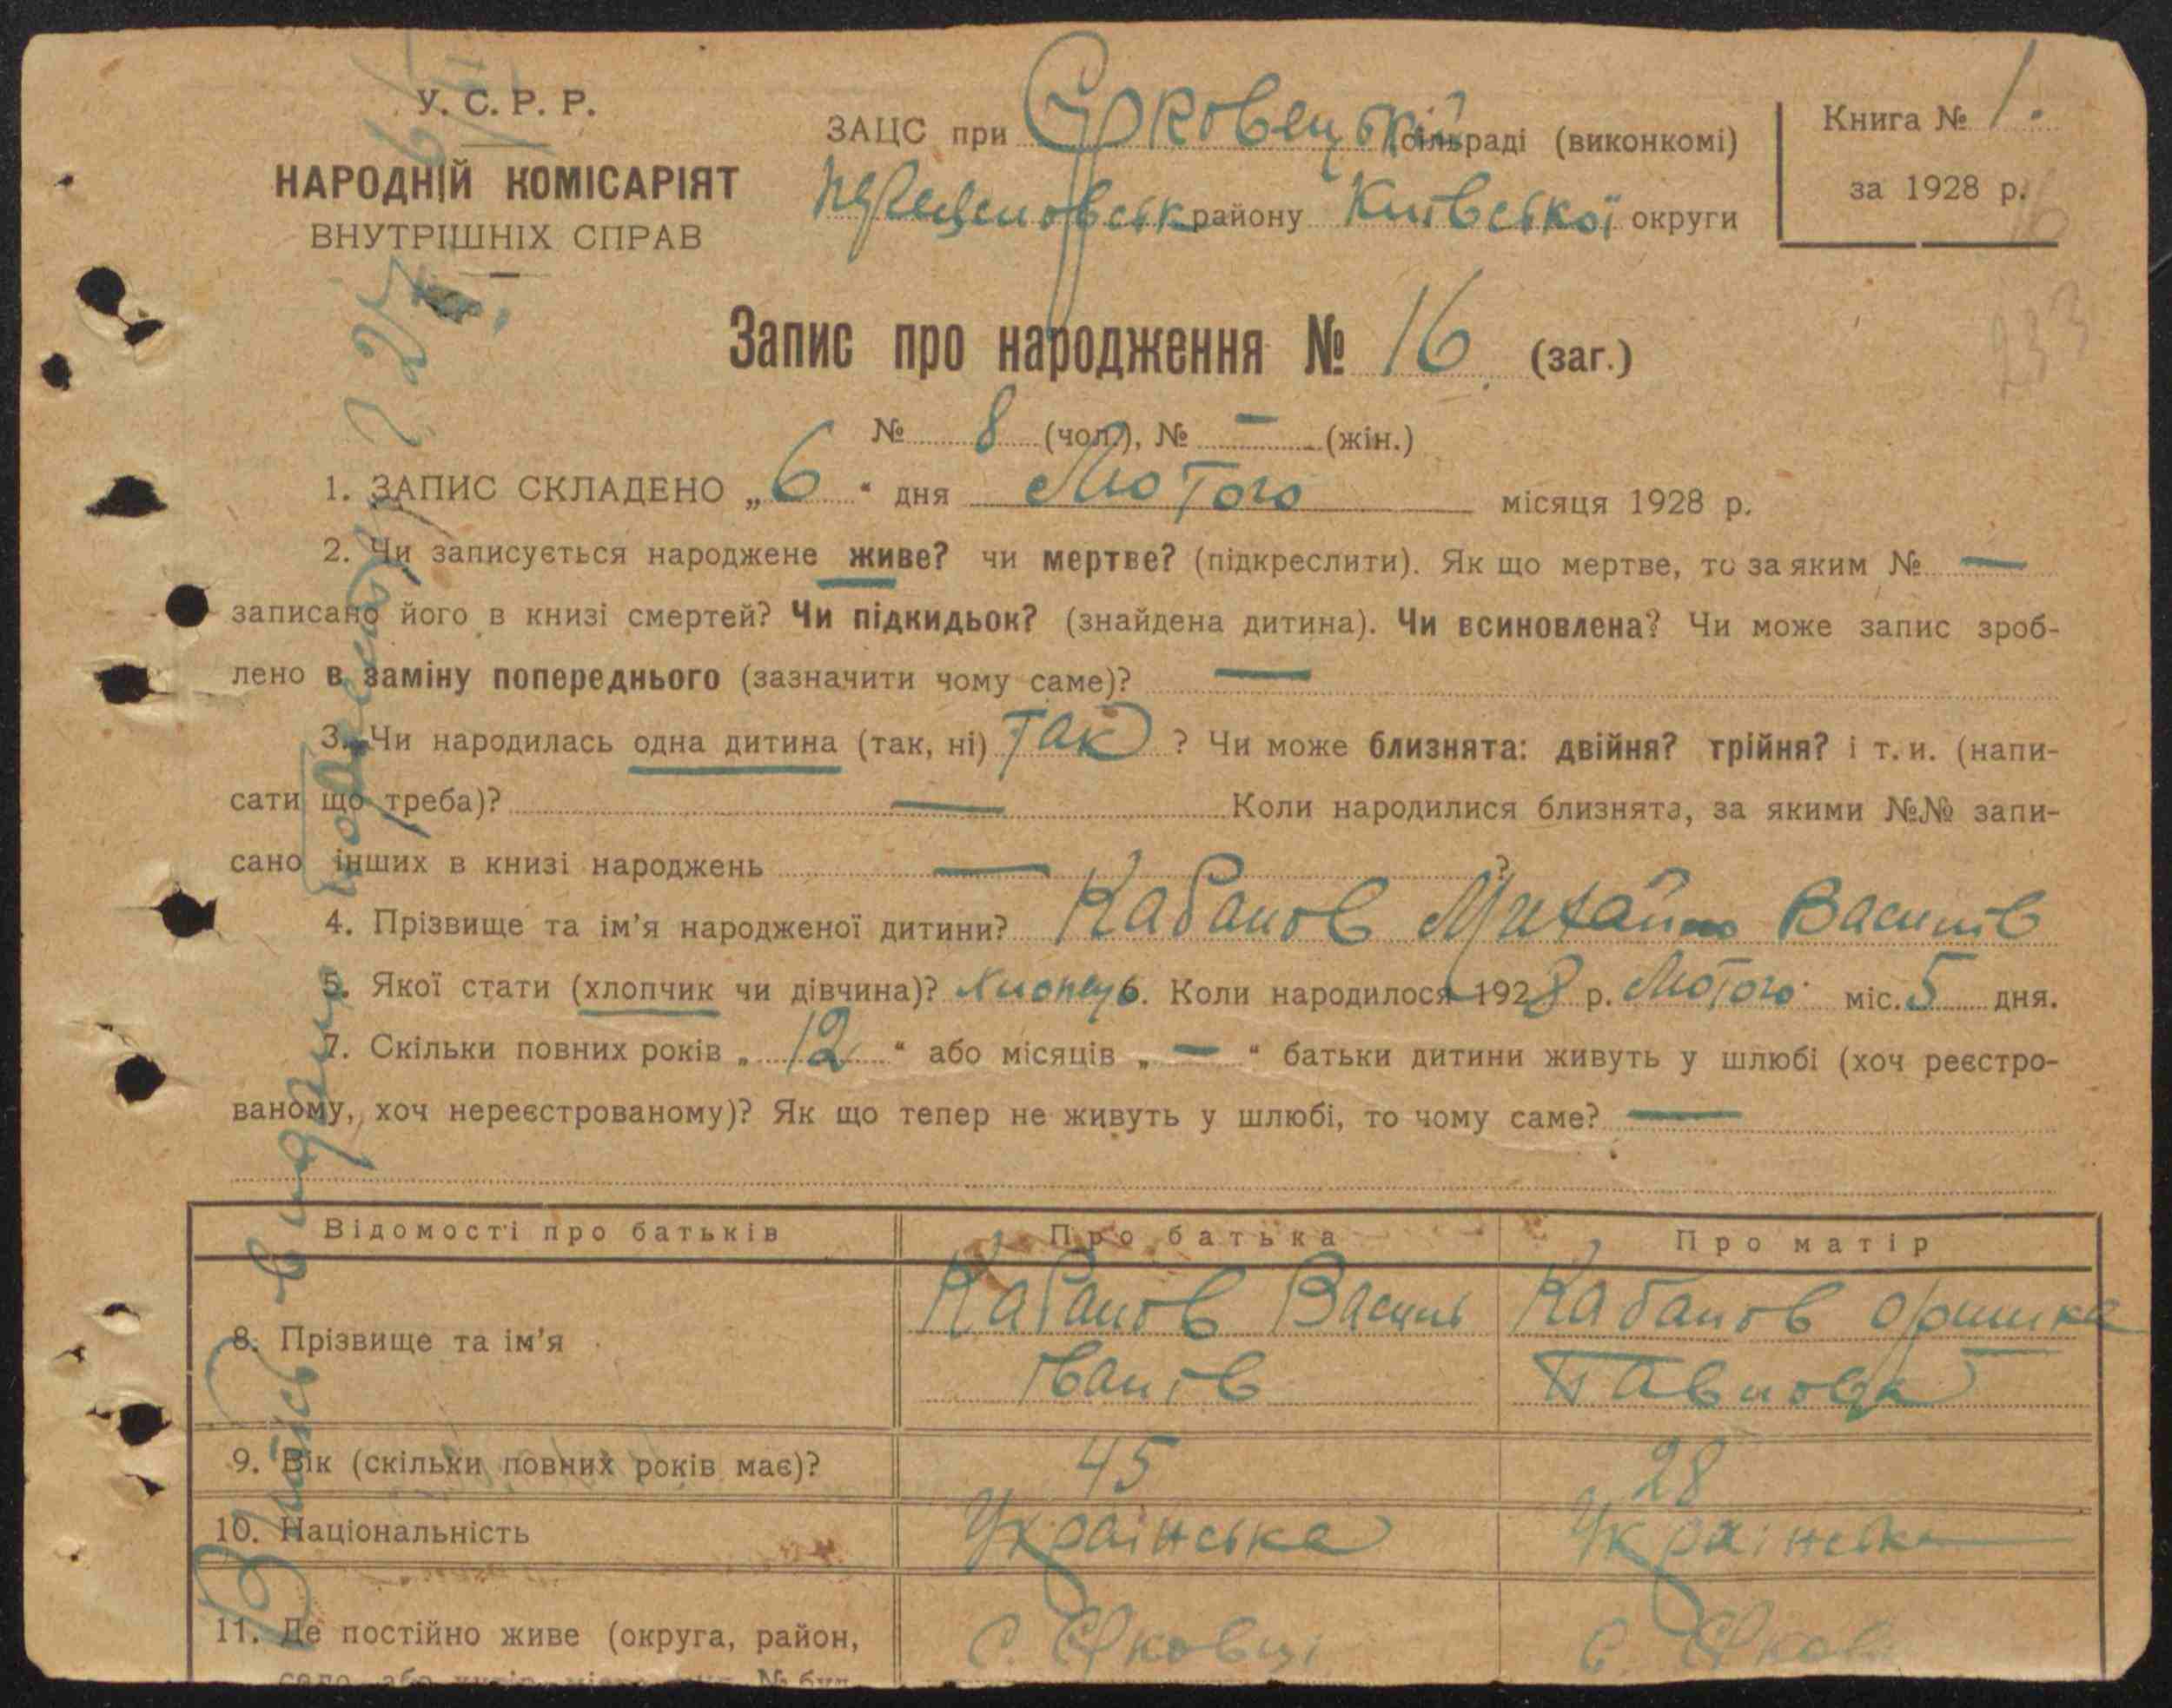 У. С. Р. Р.
НАРОДНІЙ КОМІСАРІЯТ
ВНУТРІШНІХ СПРАВ
ЗАЦС при Єрковецькій сільраді (виконкомі)
району Київської округи
Книга № 1.
за 1928 р.
16
233
Запис про народження № 16 (заг.)
№ 8 (чол.), № — (жін.)
1. ЗАПИС СКЛАДЕНО „6“ дня Лютого місяця 1928 р.
2. Чи записується народжене живе? чи мертве? (підкреслити). Як що мертве, то за яким № —
записано його в книзі смертей? Чи підкидьок? (знайдена дитина). Чи всиновлена? Чи може запис зроб-
лено в заміну попереднього (зазначити чому саме)? —
3. Чи народилась одна дитина (так, ні) Так ? Чи може близнята: двійня? трійня? і т. и. (напи-
сати що треба)? — Коли народилися близнята, за якими №№ запи-
сано інших в книзі народжень — ?
4. Прізвище та ім’я народженої дитини? Кабанов Михайло Василів
5. Якої стати (хлопчик чи дівчина)? Хлопець 6. Коли народилося 1928 р. Лютого міс. 5 дня.
7. Скільки повних років „ 12 “ або місяців „ — “ батьки дитини живуть у шлюбі (хоч реєстро-
ваному, хоч нереєстрованому)? Як що тепер не живуть у шлюбі, то чому саме? —
Відомості про батьків Про батька Про матір
8. Прізвище та ім’я Кабанов Василь Кабанов Оришка
Іванів Павловна
9. Вік (скільки повних років має)? 45 28
10. Національність Українська Українська
11. Де постійно живе (округа, район, с. Єрковці с. Єркові
село, або хутір, місто, вул., № буд.